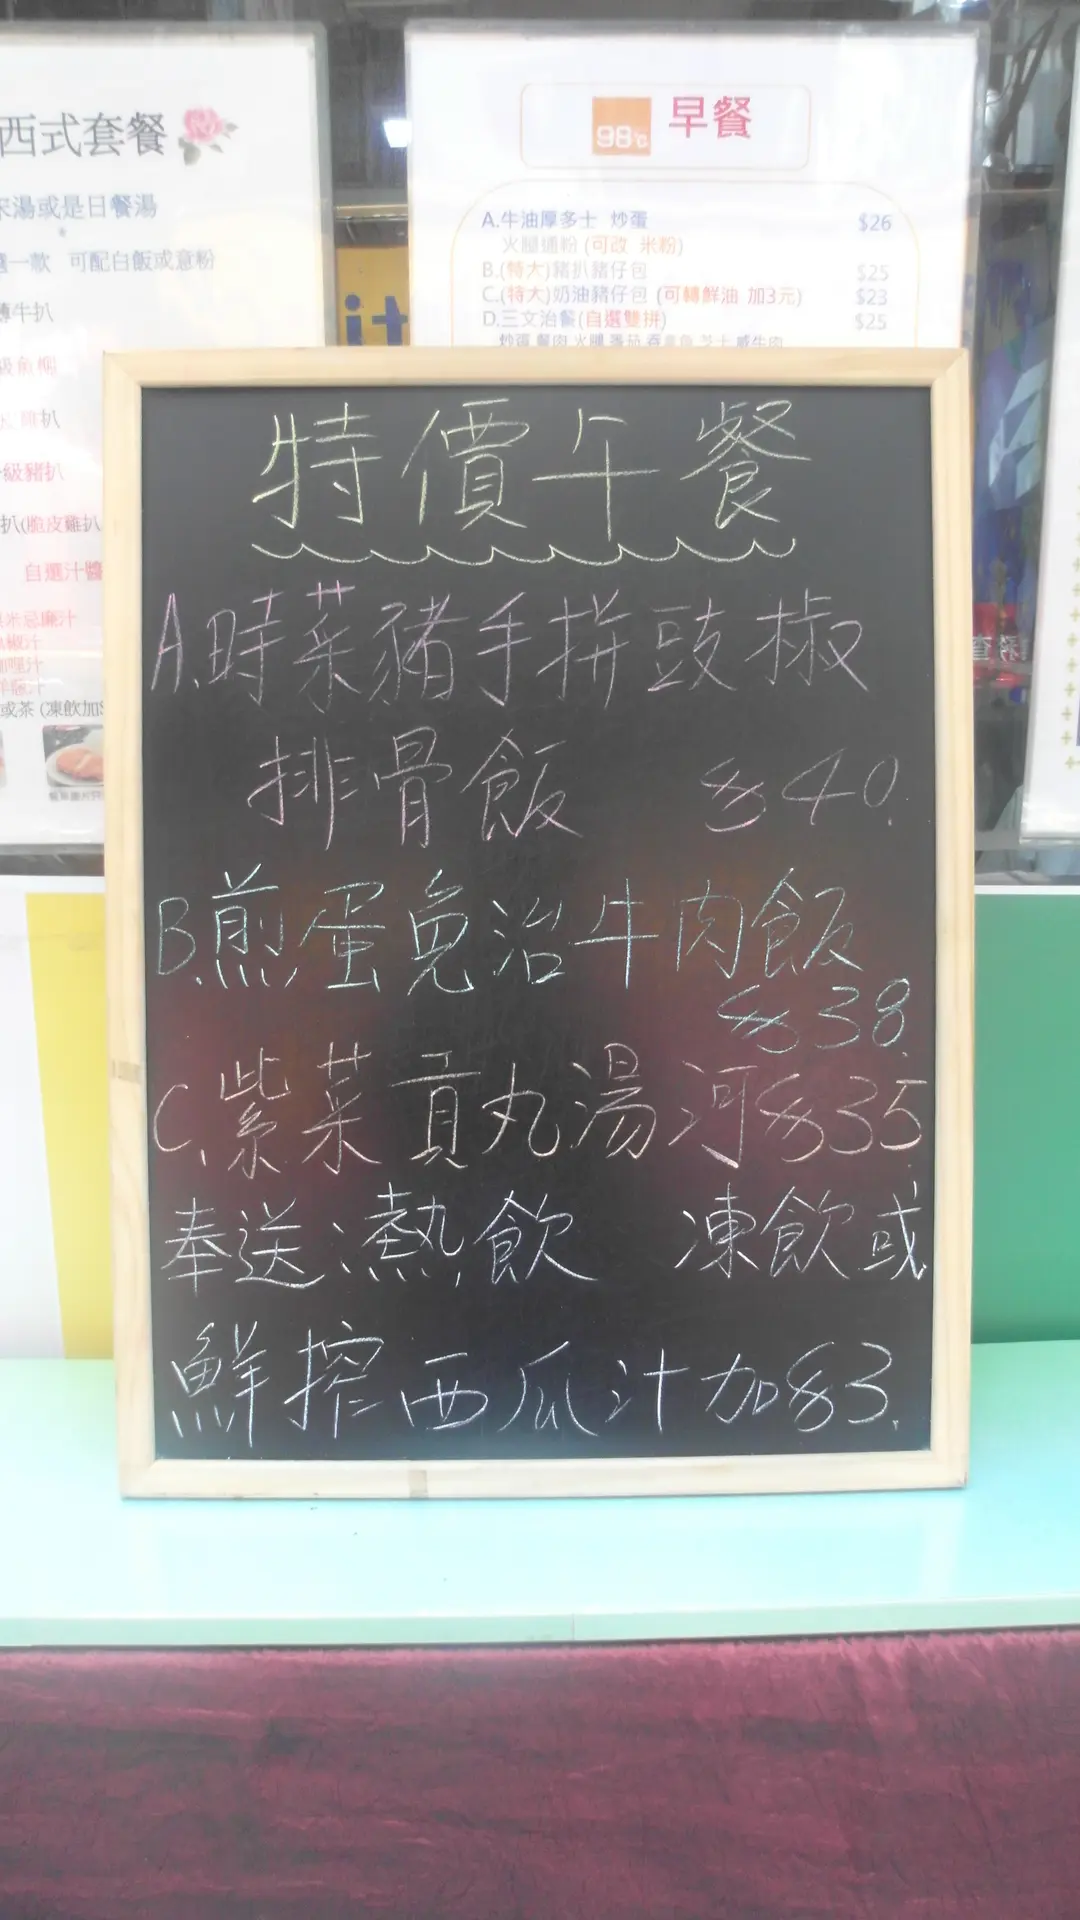 西式套餐
湯或是日餐湯
一款 可配白飯或意粉
牛扒
扒
級豬扒
扒(脆皮雞扒
自選汁醬
米忌廉汁
椒汁
咖哩汁
或茶 (凍飲加$
98℃ 早餐
A.牛油厚多士 炒蛋 $26
火腿通粉 (可改 米粉)
B.(特大)豬扒豬仔包 $25
C.(特大)奶油豬仔包 (可轉鮮油 加3元) $23
D.三文治餐(自選雙拼) $25
it
特價午餐
A.時菜豬手拼豉椒
排骨飯 $40.
B.煎蛋免治牛肉飯
$38.
C.紫菜貢丸湯河$35.
奉送:熱飲 凍飲或
鮮搾西瓜汁加$3.